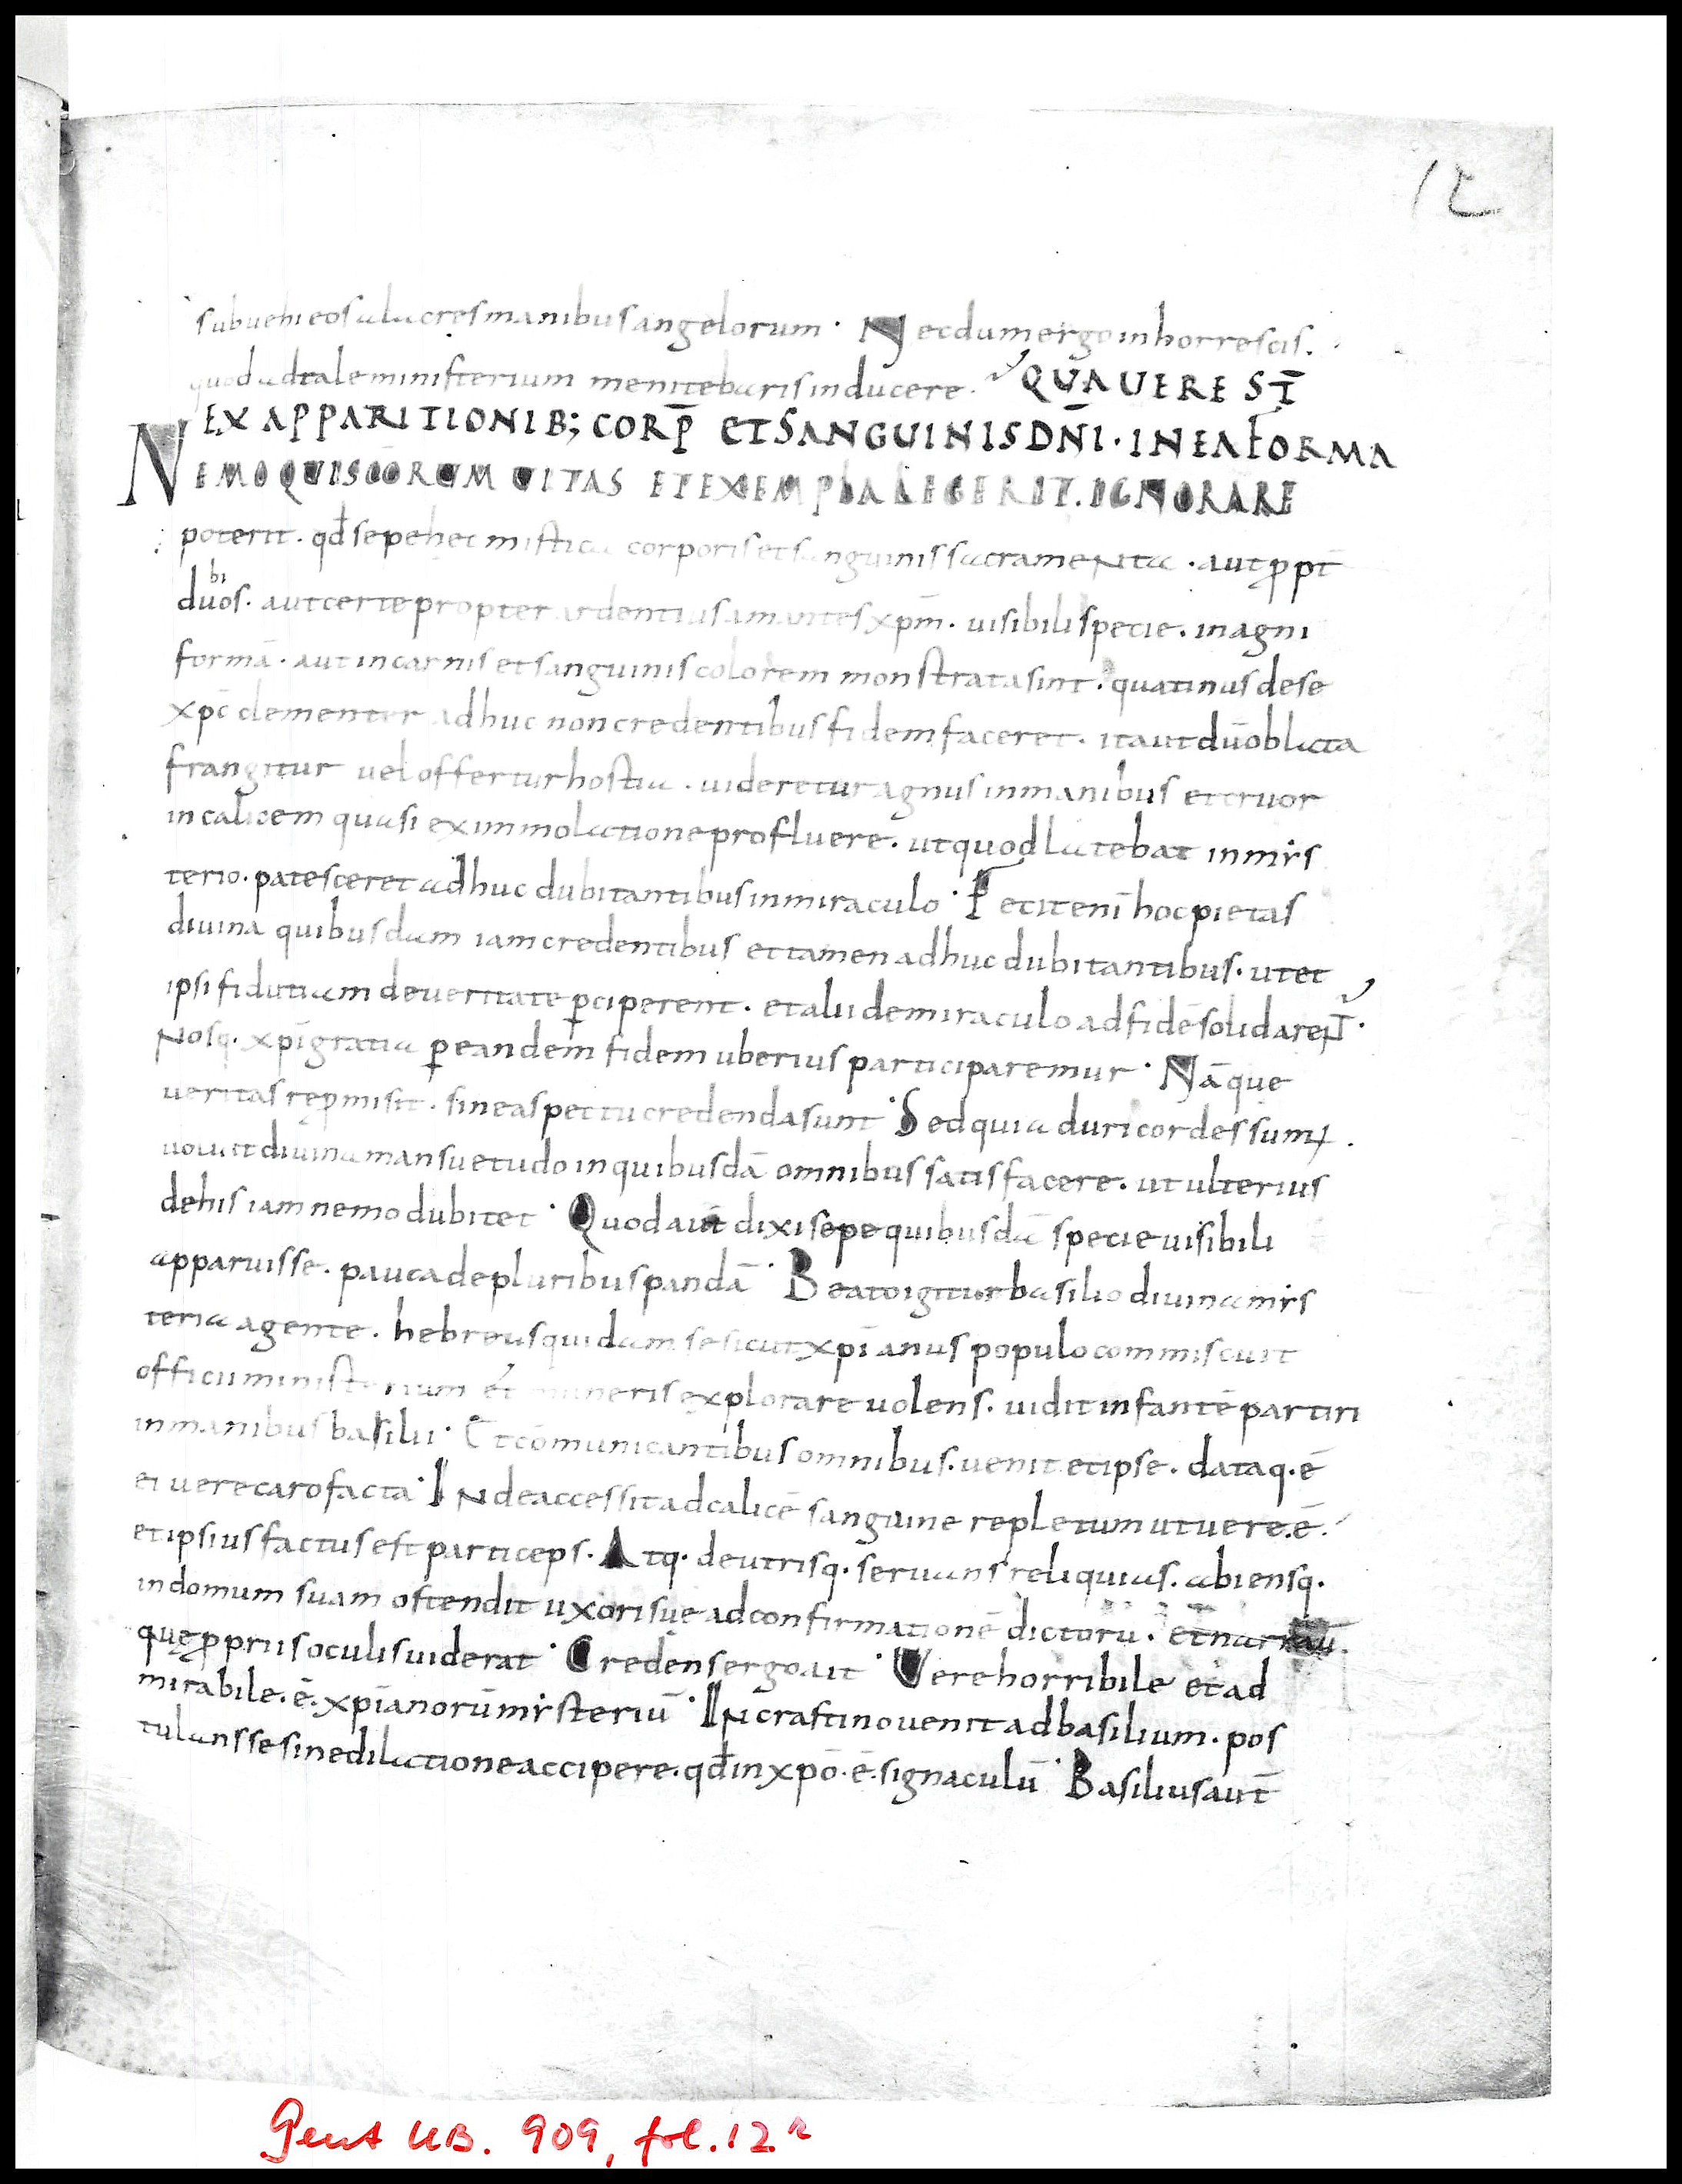 12
subuehi eos alacres manibus angelorum. Necdum ergo inhorrescis.
quod ad tale ministerium me nitebaris inducere. QUA UERE ST̄
EX APPARITIONIB; CORP̄ ET SANGUINIS DN̄I. IN EA FORMA
NEMO QUI SCŌRUM UITAS ET EXEMPLA LEGERIT. IGNORARE
poterit. qđ sepe hec mistica corporis et sanguinis sacramenta. aut ꝓpt̄
dubios. aut certe propter ardentius amantes xpm̄. uisibili specie. in agni
formā. aut in carnis et sanguinis colorem monstrata sint. quatinus de se
xpc̄ clementer adhuc non credentibus fidem faceret. ita ut dū oblata
frangitur uel offertur hostia. uideretur agnus in manibus et cruor
in calicem quasi ex immolatione profluere. ut quod latebat in mis
terio. patesceret adhuc dubitantibus in miraculo. Fecit enī hoc pietas
diuina quibusdam iam credentibus et tamen adhuc dubitantibus. ut et
ipsi fidutiam de ueritate ꝑciperent. et alii de miraculo ad fidē solidarent.
Nosq. xpī gratia ꝑ eandem fidem uberius participaremur. Nā que
ueritas reꝓmisit. sine aspectu credenda sunt. Sed quia duri cordes sum᷒.
uoluit diuina mansuetudo in quibusdā omnibus satisfacere. ut ulterius
de his iam nemo dubitet. Quod aut̄ dixi sepe quibusdā specie uisibili
apparuisse. pauca de pluribus pandā. Beato igitur basilio diuina mis
teria agente. hebreus quidam se sicut xpīanus populo commiscuit
officii ministerium et muneris explorare uolens. uidit infantē partiri
in manibus basilii. Et cōmunicantibus omnibus. uenit et ipse. dataq. ē
ei uere caro facta. Inde accessit ad calicē sanguine repletum ut uere. ē.
et ipsius factus est particeps. Atq. de utrisq. seruans reliquias. abiensq.
in domum suam ostendit uxori suę ad confirmationē dictorū. et narrau.
quę ꝓpriis oculis uiderat. Credens ergo ait. Uere horribile et ad
mirabile. ē. xpīanorū mysteriū. In crastino uenit ad basilium. pos
tulans se sine dilatione accipere. qđ in xpō. ē. signaculū. Basilius aut̄
Gent UB. 909, fol. 12r